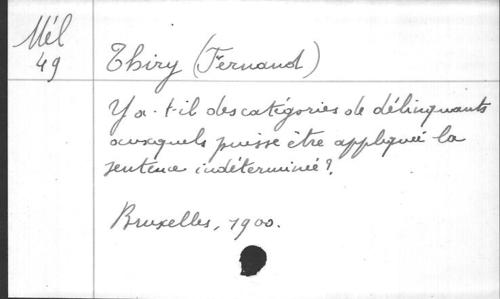 Mél
49
Thiry (Fernand)
Y a-t-il des catégories de délinquants
auxquels puisse être appliquée la
sentence indéterminée?
Bruxelles, 1900.